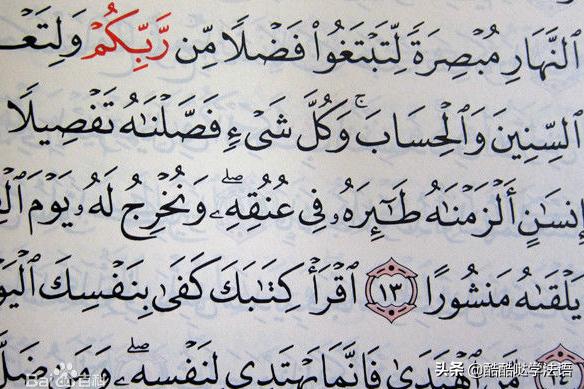 ٱلنَّهَارِ مُبۡصِرَةٗ لِّتَبۡتَغُواْ فَضۡلٗا مِّن رَّبِّكُمۡ وَلِتَعۡـ
ٱلسِّنِينَ وَٱلۡحِسَابَۚ وَكُلَّ شَيۡءٖ فَصَّلۡنَٰهُ تَفۡصِيلٗا
إِنسَٰنٍ أَلۡزَمۡنَٰهُ طَٰٓئِرَهُۥ فِي عُنُقِهِۦۖ وَنُخۡرِجُ لَهُۥ يَوۡمَ
يَلۡقَىٰهُ مَنشُورًا ١٣ ٱقۡرَأۡ كِتَٰبَكَ كَفَىٰ بِنَفۡسِكَ
ٱهۡتَدَىٰ فَإِنَّمَا يَهۡتَدِي لِنَفۡسِهِۦۖ وَمَن
Bai百科
头条 @酷酷哒学法语